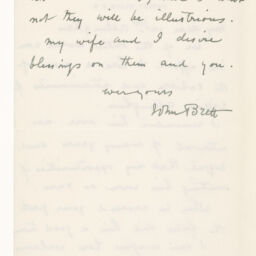 not they will be illustrious.
my wife and I desire
blessings on them and you.
ever yours
John Brett